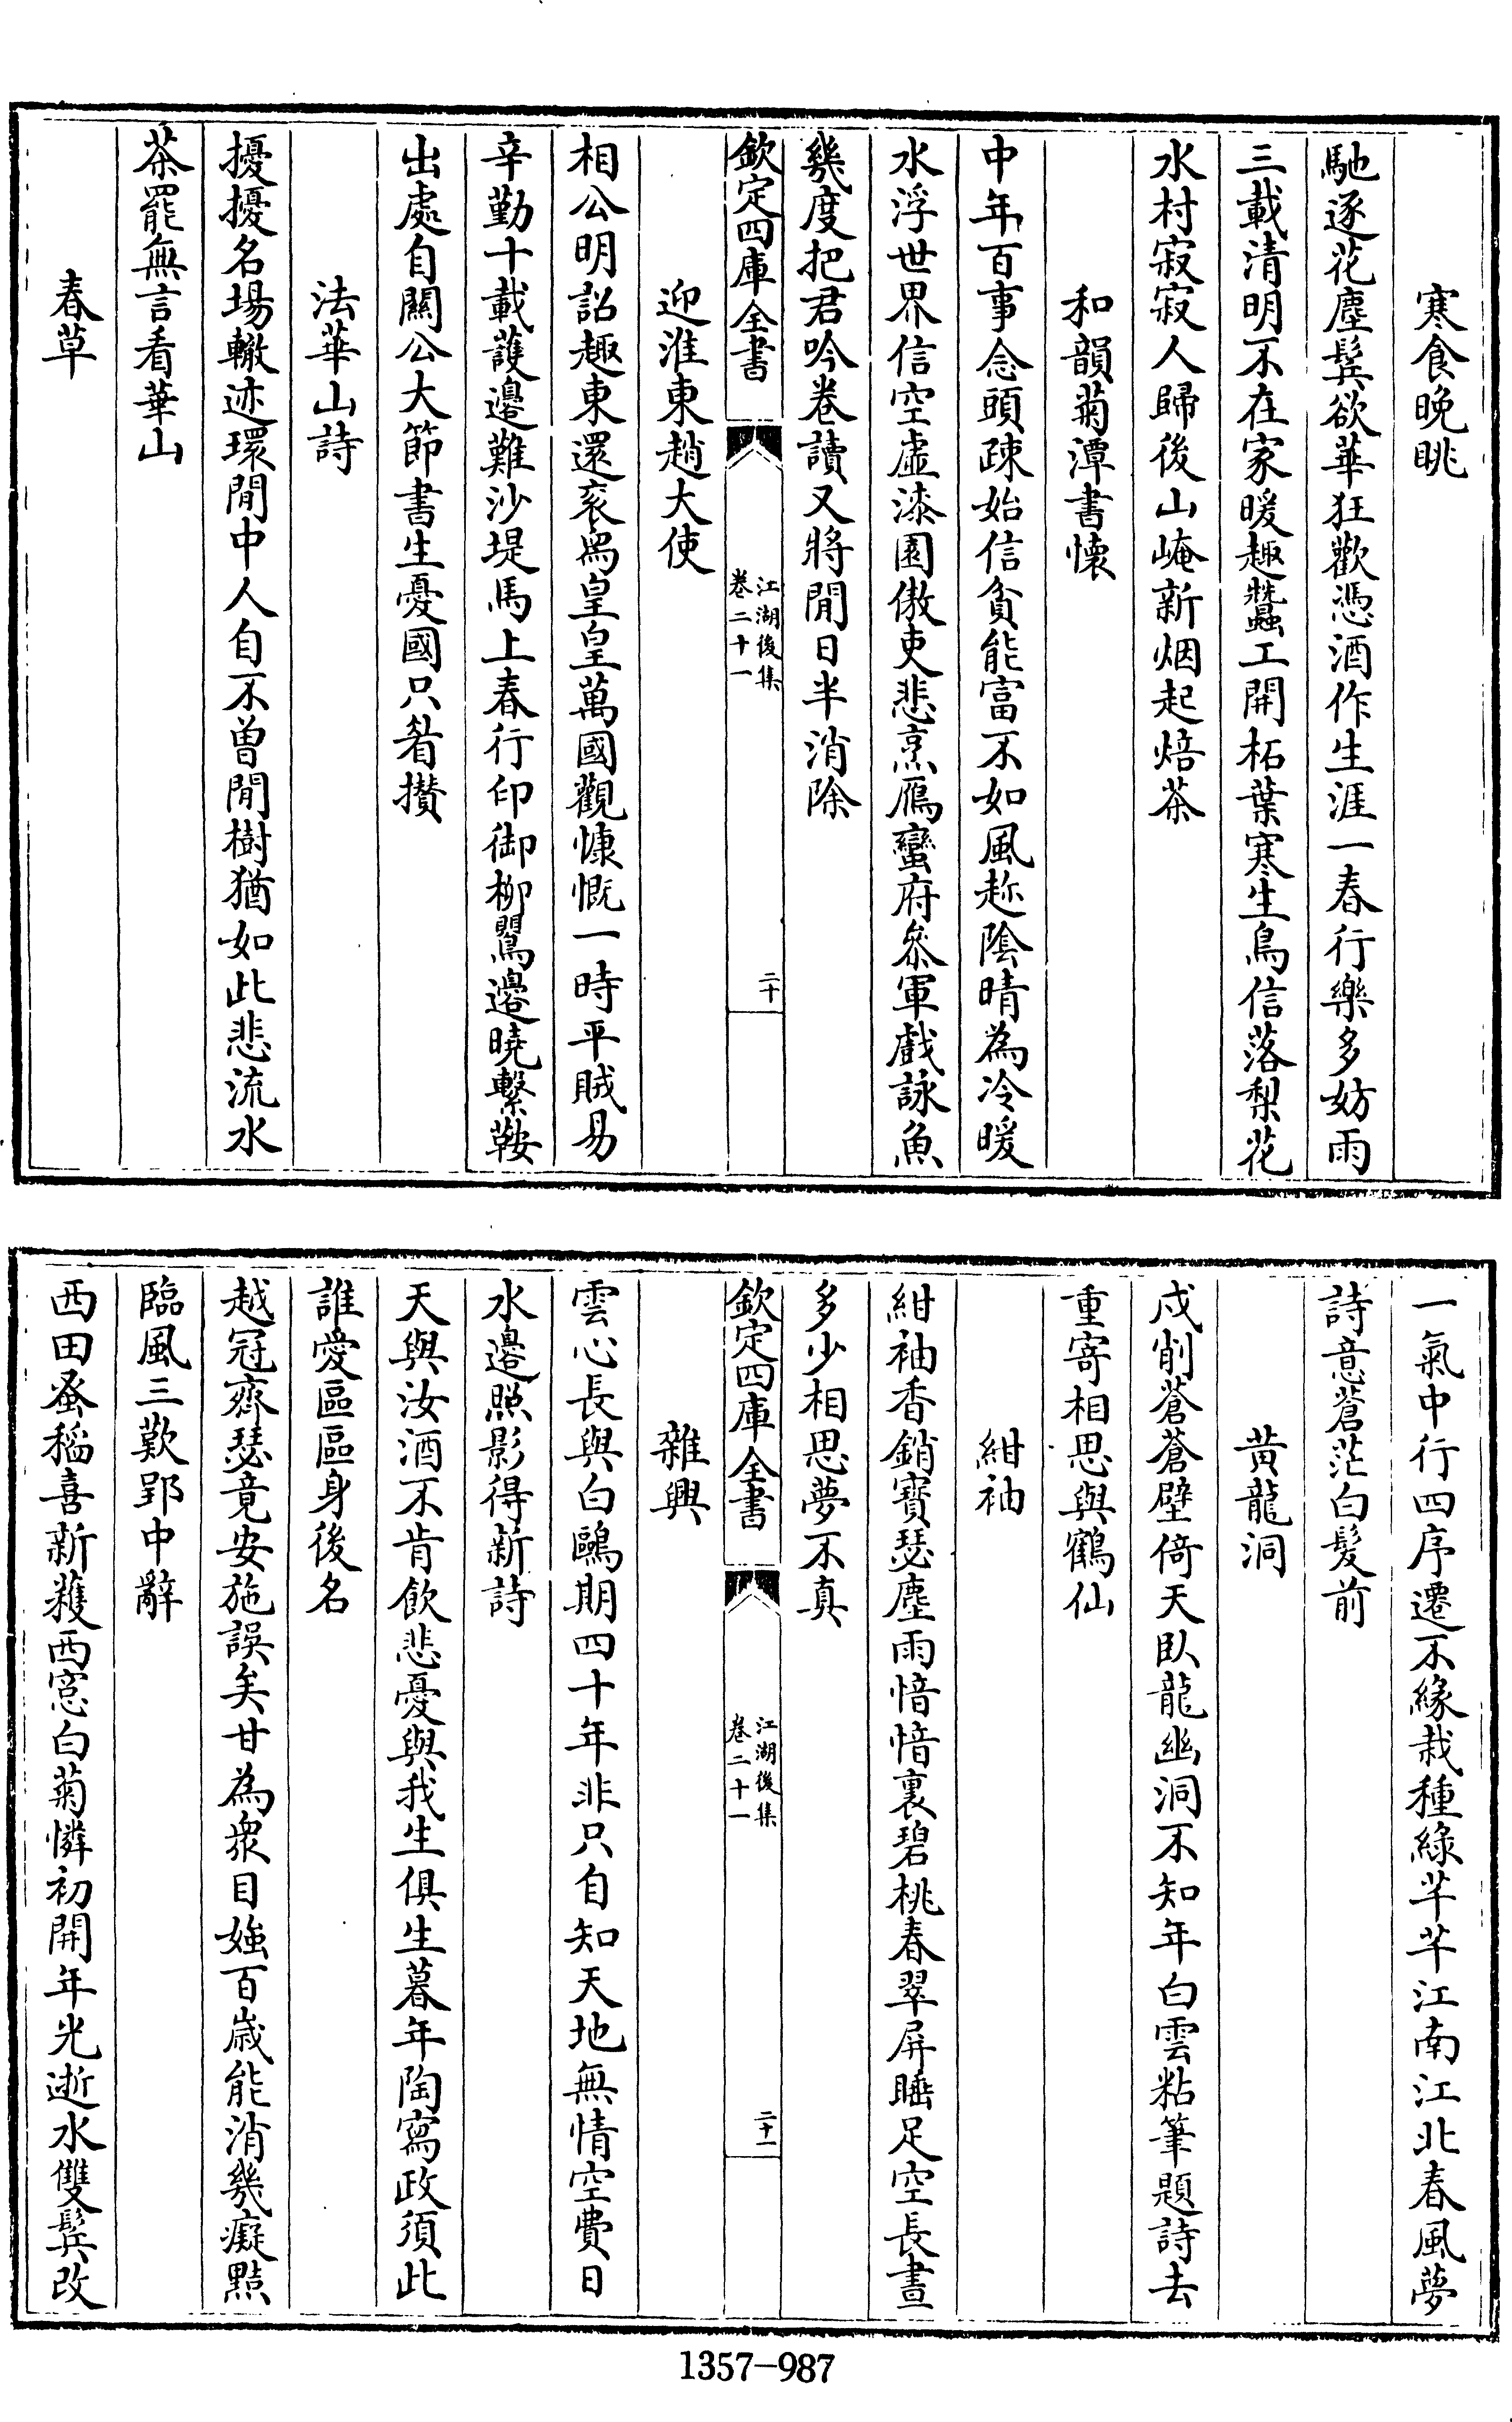 寒食晚眺
馳逐花塵鬂欲華狂歡憑酒作生涯一春行樂多妨雨
三載清明不在家暖趣蠶工開柘葉寒生鳥信落梨花
水村寂寂人歸後山崦新烟起焙茶
和韻菊潭書懷
中年百事念頭疎始信貧能富不如風趂陰晴為冷暖
水浮世界信空虛漆園傲吏悲烹鴈蠻府叅軍戲詠魚
幾度把君吟卷讀又將閒日半消除
欽定四庫全書
江湖後集
卷二十一
二十
迎淮東趙大使
相公明詔趣東還衮舄皇皇萬國觀慷慨一時平賊易
辛勤十載護邊難沙堤馬上春行印御栁鸎邊曉繫鞍
出處自關公大節書生憂國只㫺攅
法華山詩
擾擾名場轍迹環閒中人自不曾閒樹猶如此悲流水
茶罷無言看華山
春草
一氣中行四序遷不緣栽種綠芊芊江南江北春風夢
詩意蒼茫白髮前
黃龍洞
戍削蒼蒼壁倚天臥龍幽洞不知年白雲粘筆題詩去
重寄相思與鶴仙
紺袖
紺袖香銷寶瑟塵雨愔愔裏碧桃春翠屏睡足空長晝
多少相思夢不真
欽定四庫全書
江湖後集
卷二十一
二十一
雜興
雲心長與白鷗期四十年非只自知天地無情空費日
水邊照影得新詩
天與汝酒不肯飲悲憂與我生俱生暮年陶寫政須此
誰愛區區身後名
越冠齊瑟竟安施誤矣甘為衆目媸百歲能消幾癡黠
臨風三歎郢中辭
西田蚤稻喜新穫西窓白菊憐初開年光逝水雙鬂改
1357-987